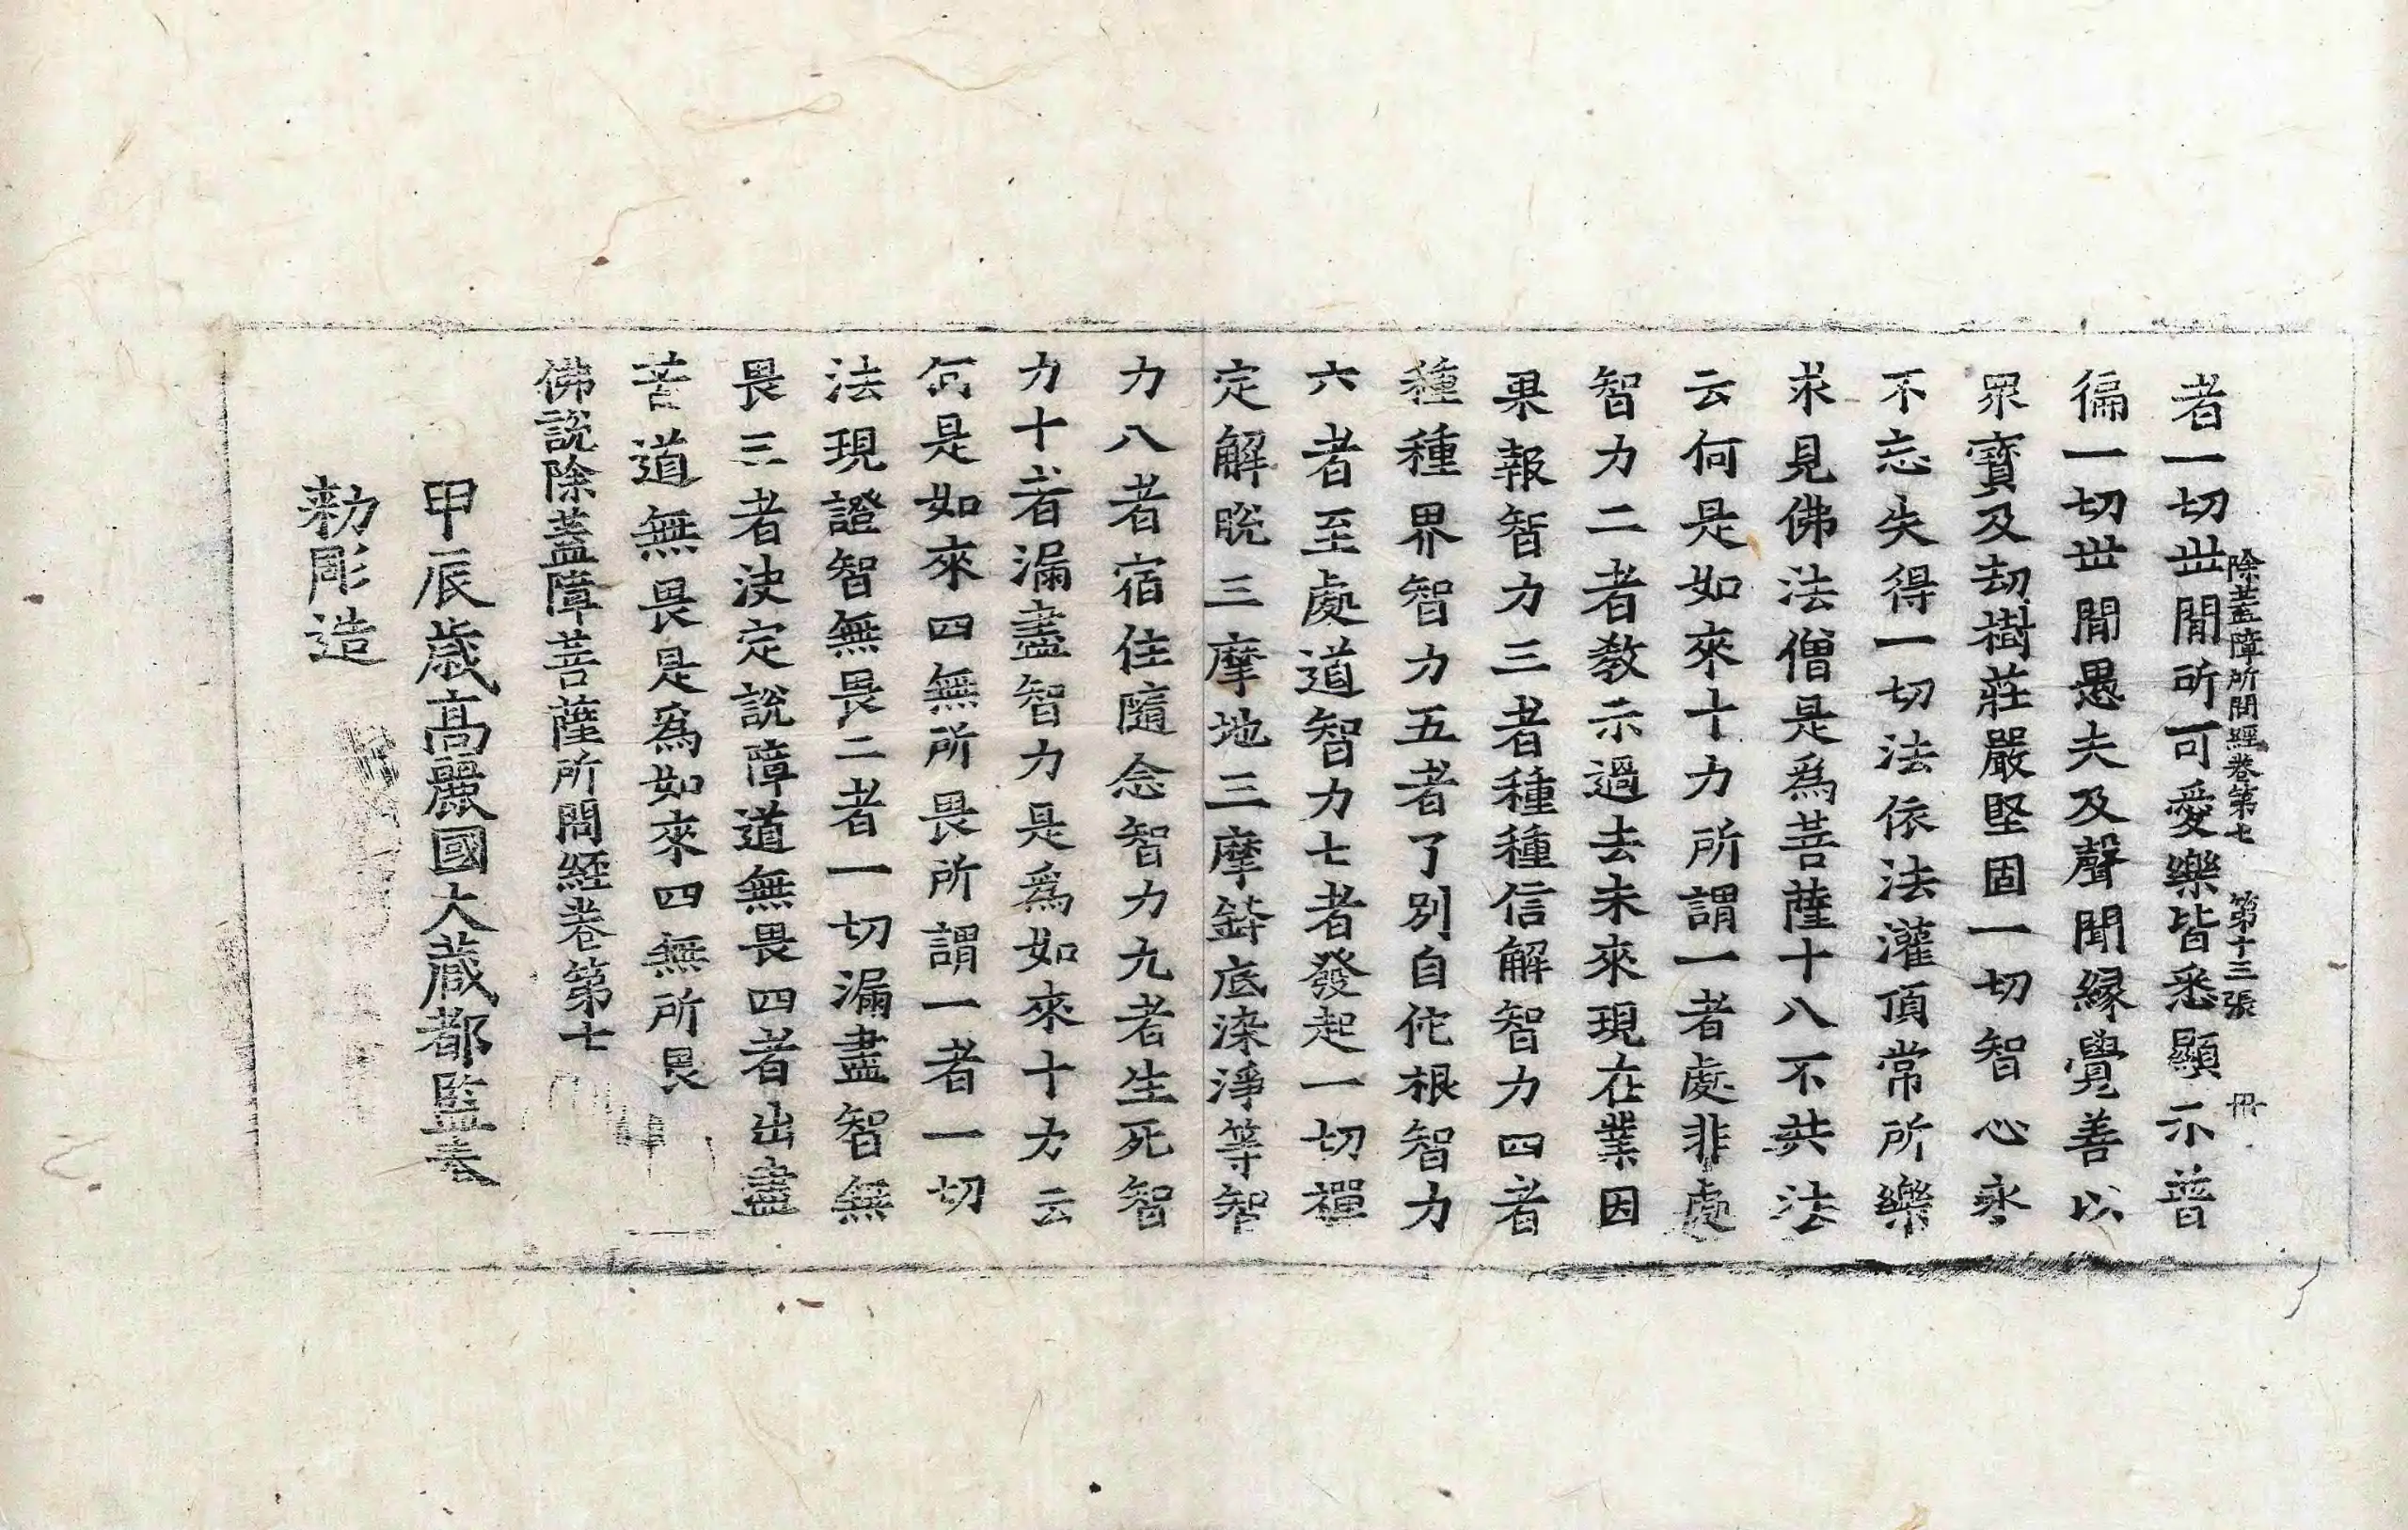 除蓋障所問經卷第七　第十三張　冊
者一切丗間所可愛樂皆悉顯示普
徧一切丗間愚夫及聲聞縁覺善以
眾寶及劫樹莊嚴堅固一切智心永
不忘失得一切法依法灌頂常所樂
求見佛法僧是爲菩薩十八不共法
云何是如來十力所謂一者處非處
智力二者教示過去未來現在業因
果報智力三者種種信解智力四者
種種界智力五者了別自佗根智力
六者至處道智力七者發起一切禪
定解脫三摩地三摩鉢底染淨等智
力八者宿住隨念智力九者生死智
力十者漏盡智力是爲如來十力云
何是如來四無所畏所謂一者一切
法現證智無畏二者一切漏盡智無
畏三者决定說障道無畏四者出盡
苦道無畏是爲如來四無所畏
佛說除蓋障菩薩所問經卷第七
甲辰歲高麗國大藏都監奉
勑彫造